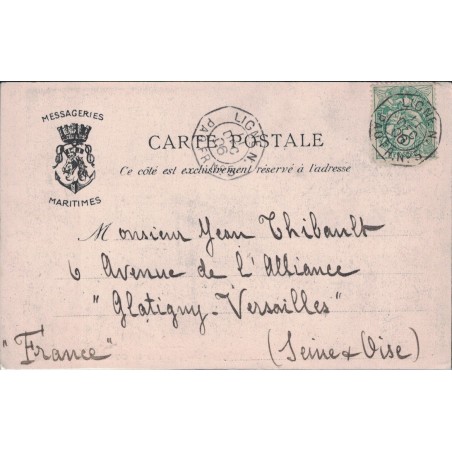 MESSAGERIES
MARITIMES
LIGNE N
CARTE POSTALE
Ce côté est exclusivement réservé à l'adresse
Monsieur Jean Thibault
6 Avenue de l'Alliance
"Glatigny-Versailles"
"France"
(Seine & Oise)